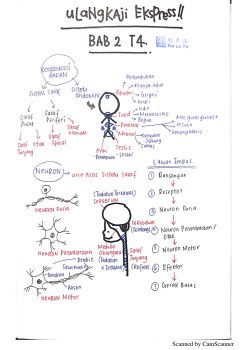 ULANGKAJI EKSPRESS!!
BAB 2 T4.
KOORDINASI BADAN
Sistem Saraf
Sistem Endokrin
Saraf Pusat
Saraf Periferi
Otak
Saraf Tunjang
Saraf Spina
Pituitari
Tiroid
Pankreas
Adrena
Ovari
Testis
NEURON
Unit Asas Sistem Saraf
NEURON Deria
NEURON Perantaraan
Dendrit
Akson
NEURON Motor
(Tindakan Terkawal)
Serebrum
Serebelum
Medula Oblongata
(Tindakan X Terkawal)
Saraf Tunjang
(Refleks)
Laluan Impuls
1 Rangsangan
2 Reseptor
3 Neuron Deria
4 Neuron Perantaraan / Otak
5 Neuron Motor
6 Efektor
7 Gerak Balas
Scanned by CamScanner